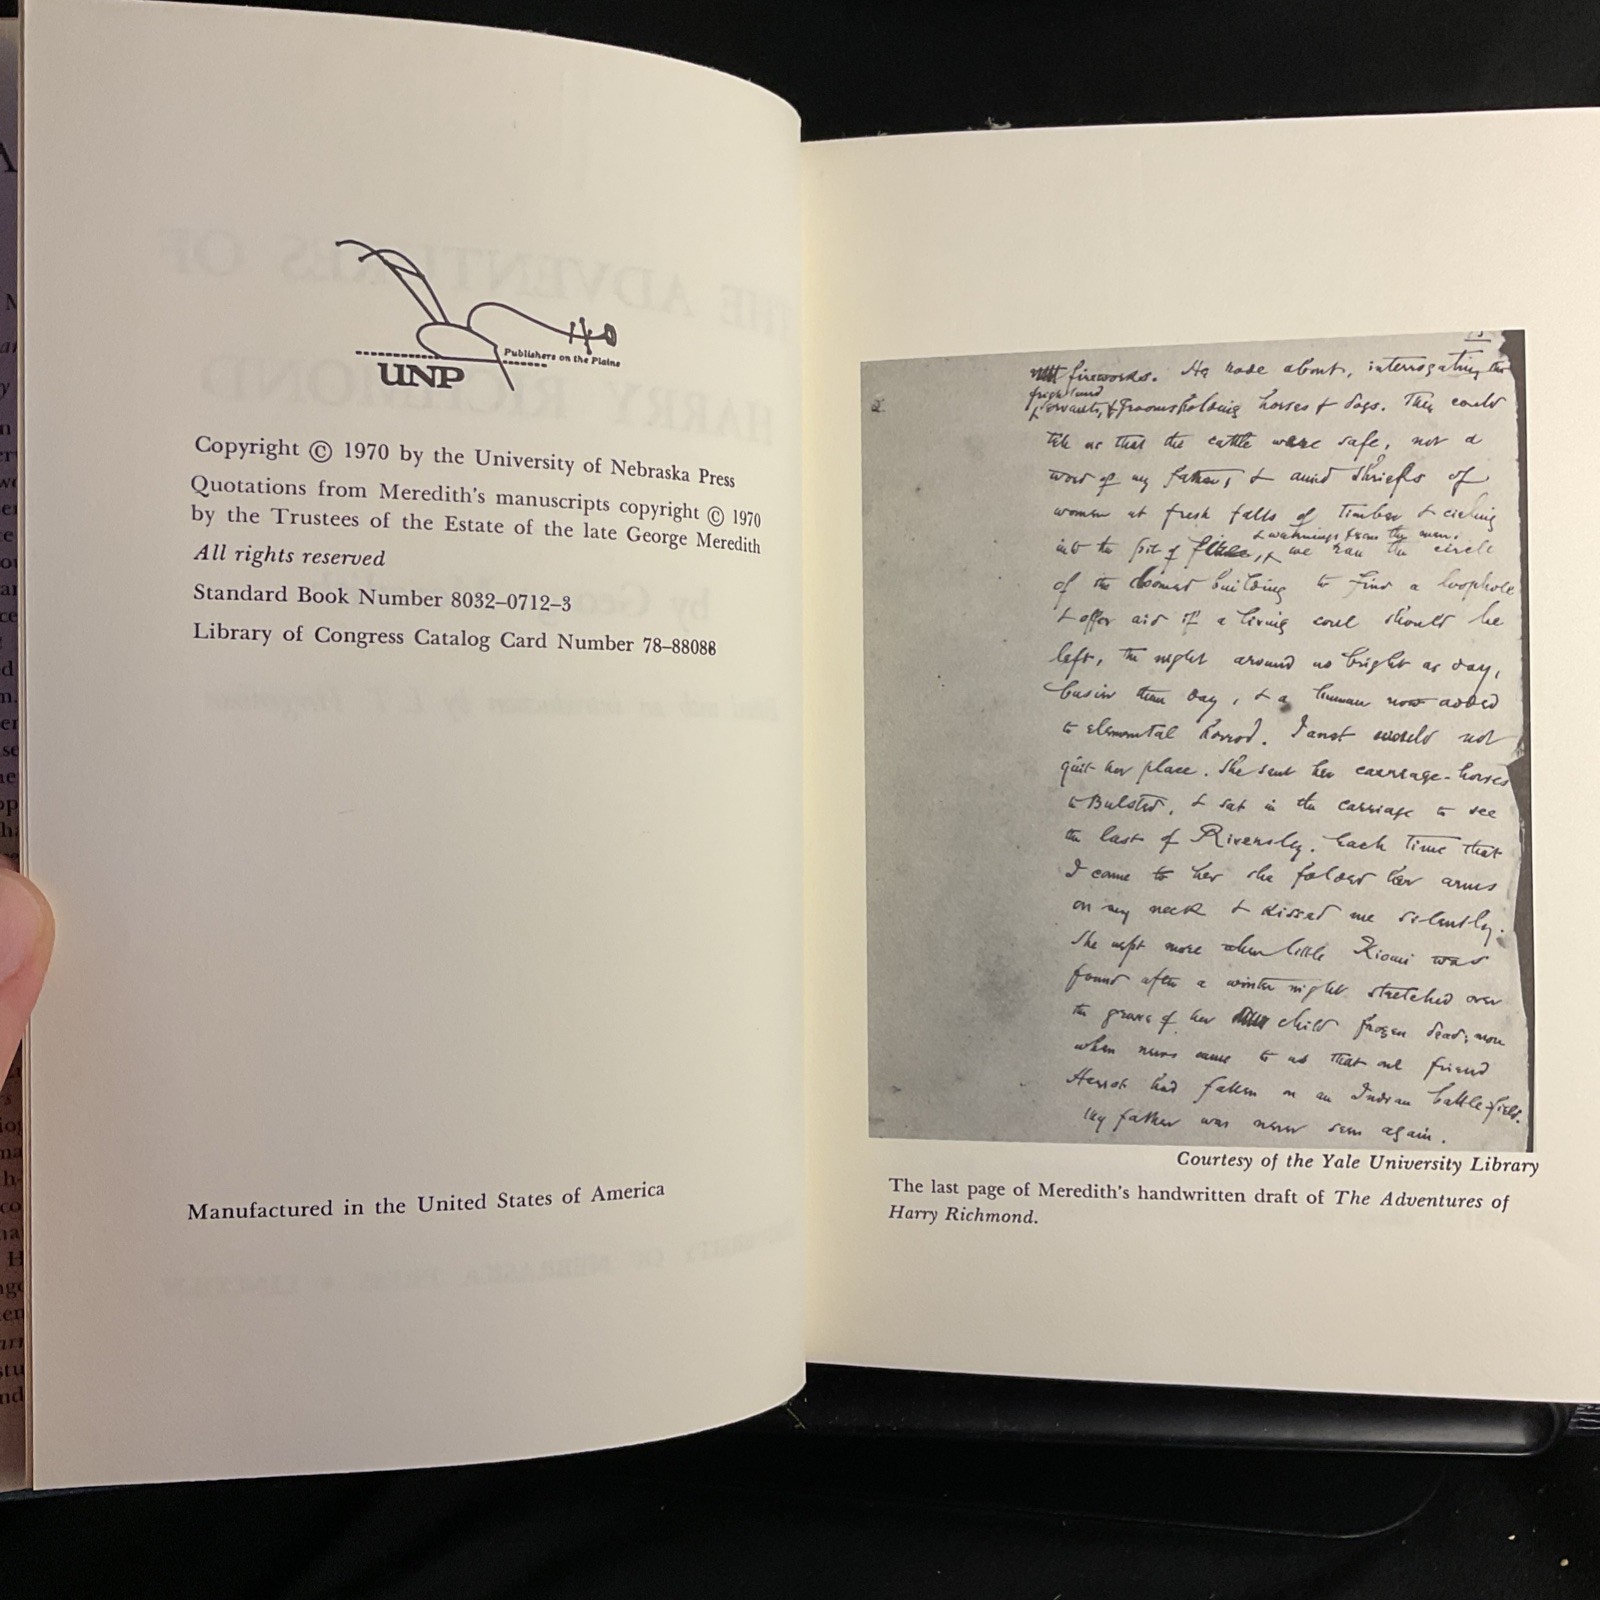 Publishers on the Plains
UNP
Copyright © 1970 by the University of Nebraska Press
Quotations from Meredith's manuscripts copyright © 1970
by the Trustees of the Estate of the late George Meredith
All rights reserved
Standard Book Number 8032–0712–3
Library of Congress Catalog Card Number 78–88088
Manufactured in the United States of America
fireworks. He rode about, interrogating the
frightened
servants, & grooms holding horses & dogs. They could
tell us that the cattle were safe, not a
word of my father; & amid shrieks of
women at fresh falls of timber & ceiling
& warnings from the men,
into the pit of fire, we ran the circle
of the doomed building to find a loophole
& offer aid if a living soul should be
left, the night around us bright as day,
busier than day, & a human now added
to elemental horror. Janet would not
quit her place. She sent her carriage-horses
to Bulsted, & sat in the carriage to see
the last of Riversley. Each time that
I came to her she folded her arms
on my neck & kissed me silently.
She wept more when little Kiomi was
found after a winter night stretched over
the grave of her child frozen dead; more
when news came to us that our friend
Heriot had fallen on an Indian battle-field.
My father was never seen again.
Courtesy of the Yale University Library
The last page of Meredith's handwritten draft of The Adventures of
Harry Richmond.